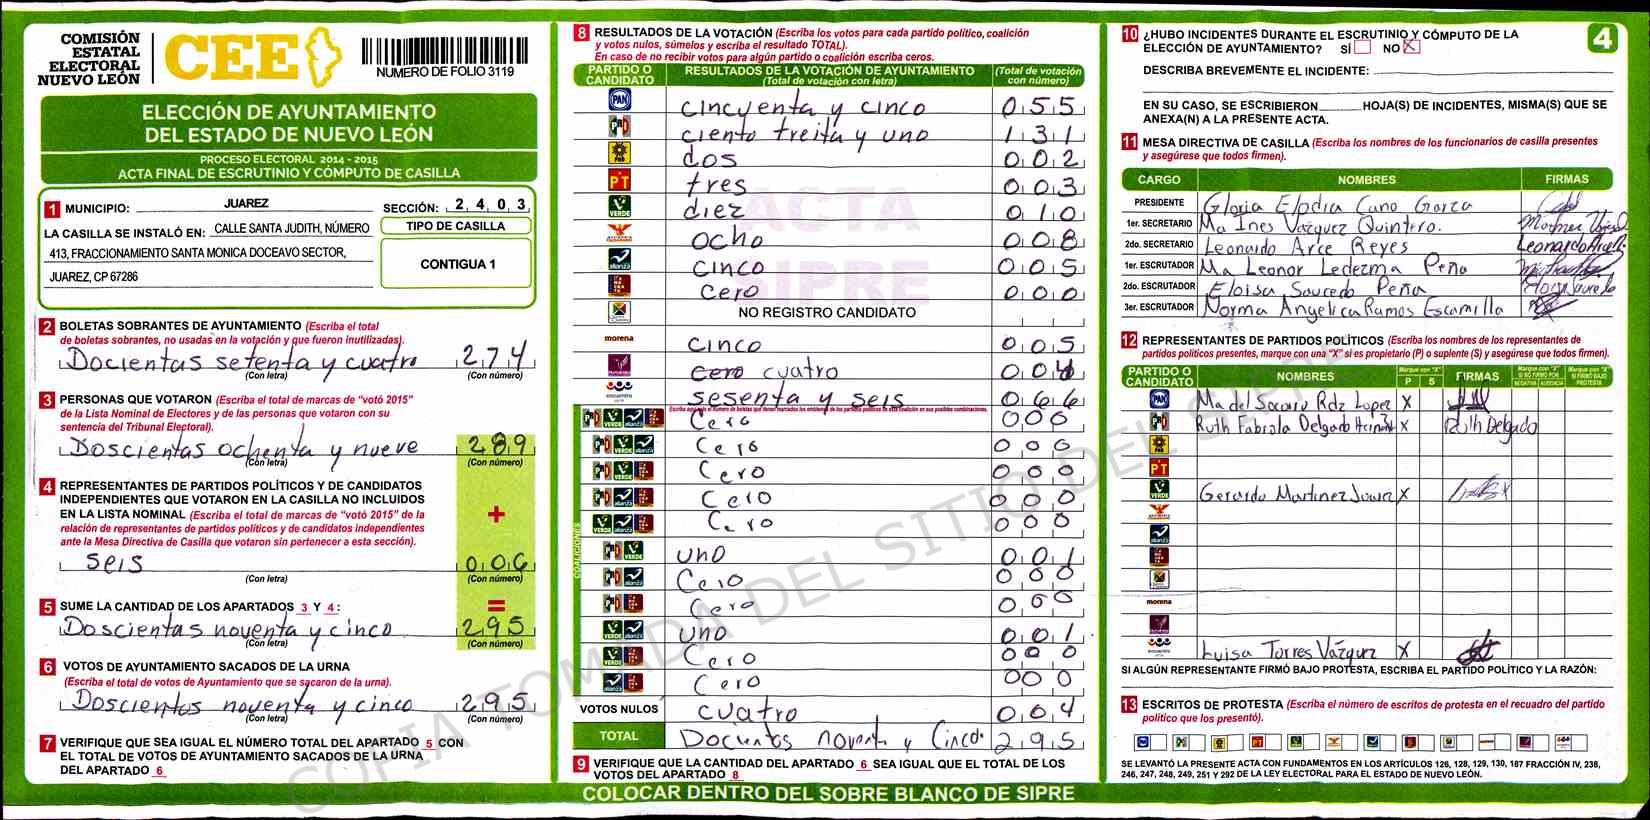 COMISIÓN
ESTATAL
ELECTORAL
NUEVO LEÓN
CEE
NUMERO DE FOLIO 3119
ELECCIÓN DE AYUNTAMIENTO
DEL ESTADO DE NUEVO LEÓN
PROCESO ELECTORAL 2014 - 2015
ACTA FINAL DE ESCRUTINIO Y CÓMPUTO DE CASILLA
1 MUNICIPIO: JUAREZ SECCIÓN: 2 4 0 3
LA CASILLA SE INSTALÓ EN: CALLE SANTA JUDITH, NÚMERO
413, FRACCIONAMIENTO SANTA MONICA DOCEAVO SECTOR,
JUAREZ, CP 67286
TIPO DE CASILLA
CONTIGUA 1
2 BOLETAS SOBRANTES DE AYUNTAMIENTO (Escriba el total
de boletas sobrantes, no usadas en la votación y que fueron inutilizadas).
Docientas setenta y cuatro 274
(Con letra) (Con número)
3 PERSONAS QUE VOTARON (Escriba el total de marcas de “votó 2015”
de la Lista Nominal de Electores y de las personas que votaron con su
sentencia del Tribunal Electoral).
Doscientas ochenta y nueve 289
(Con letra) (Con número)
4 REPRESENTANTES DE PARTIDOS POLÍTICOS Y DE CANDIDATOS
INDEPENDIENTES QUE VOTARON EN LA CASILLA NO INCLUIDOS
EN LA LISTA NOMINAL (Escriba el total de marcas de “votó 2015” de la
relación de representantes de partidos políticos y de candidatos independientes
ante la Mesa Directiva de Casilla que votaron sin pertenecer a esta sección).
+
seis 006
(Con letra) (Con número)
5 SUME LA CANTIDAD DE LOS APARTADOS 3 Y 4: =
Doscientas noventa y cinco 295
(Con letra) (Con número)
6 VOTOS DE AYUNTAMIENTO SACADOS DE LA URNA
(Escriba el total de votos de Ayuntamiento que se sacaron de la urna).
Doscientos noventa y cinco 295
(Con letra) (Con número)
7 VERIFIQUE QUE SEA IGUAL EL NÚMERO TOTAL DEL APARTADO 5 CON
EL TOTAL DE VOTOS DE AYUNTAMIENTO SACADOS DE LA URNA
DEL APARTADO 6
8 RESULTADOS DE LA VOTACIÓN (Escriba los votos para cada partido político, coalición
y votos nulos, súmelos y escriba el resultado TOTAL).
En caso de no recibir votos para algún partido o coalición escriba ceros.
PARTIDO O CANDIDATO RESULTADOS DE LA VOTACIÓN DE AYUNTAMIENTO (Total de votación con letra) (Total de votación con número)
PAN cincuenta y cinco 055
PRD ciento treita y uno 131
dos 002
PT tres 003
VERDE diez 010
ocho 008
alianza cinco 005
cero 000
NO REGISTRO CANDIDATO
morena cinco 005
cero cuatro 004
encuentro sesenta y seis 066
Cero 000
Cero 000
Cero 000
Cero 000
Cero 000
uno 001
Cero 000
Cero 000
uno 001
Cero 000
Cero 000
COALICIONES
VOTOS NULOS cuatro 004
TOTAL Docientos noventa y Cinco. 295
ACTA
SIPRE
9 VERIFIQUE QUE LA CANTIDAD DEL APARTADO 6 SEA IGUAL QUE EL TOTAL DE LOS
VOTOS DEL APARTADO 8
COLOCAR DENTRO DEL SOBRE BLANCO DE SIPRE
10 ¿HUBO INCIDENTES DURANTE EL ESCRUTINIO Y CÓMPUTO DE LA
ELECCIÓN DE AYUNTAMIENTO? SÍ NO X
4
DESCRIBA BREVEMENTE EL INCIDENTE:
EN SU CASO, SE ESCRIBIERON HOJA(S) DE INCIDENTES, MISMA(S) QUE SE
ANEXA(N) A LA PRESENTE ACTA.
11 MESA DIRECTIVA DE CASILLA (Escriba los nombres de los funcionarios de casilla presentes
y asegúrese que todos firmen).
CARGO NOMBRES FIRMAS
PRESIDENTE Gloria Elpdia Cano Garza
1er. SECRETARIO Ma Ines Vazquez Quintero.
2do. SECRETARIO Leonardo Arce Reyes
1er. ESCRUTADOR Ma Leonor Ledezma Peña
2do. ESCRUTADOR Eloisa Saucedo Peña
3er. ESCRUTADOR Norma Angelica Ramos Escamilla
12 REPRESENTANTES DE PARTIDOS POLÍTICOS (Escriba los nombres de los representantes de
partidos políticos presentes, marque con una “X” si es propietario (P) o suplente (S) y asegúrese que todos firmen).
PARTIDO O CANDIDATO NOMBRES Marque con "X" P S FIRMAS
PAN Ma del Socorro Rdz Lopez X
PRD Ruth Fabiola Delgado X Ruth Delgado
PT
VERDE Gerardo Martinez Juarez X
morena
Luisa Torres Vázquez X
SI ALGÚN REPRESENTANTE FIRMÓ BAJO PROTESTA, ESCRIBA EL PARTIDO POLÍTICO Y LA RAZÓN:
13 ESCRITOS DE PROTESTA (Escriba el número de escritos de protesta en el recuadro del partido
político que los presentó).
SE LEVANTÓ LA PRESENTE ACTA CON FUNDAMENTOS EN LOS ARTÍCULOS 126, 128, 129, 130, 187 FRACCIÓN IV, 238,
246, 247, 248, 249, 251 Y 292 DE LA LEY ELECTORAL PARA EL ESTADO DE NUEVO LEÓN.
COPIA TOMADA DEL SITIO DEL SIPRE